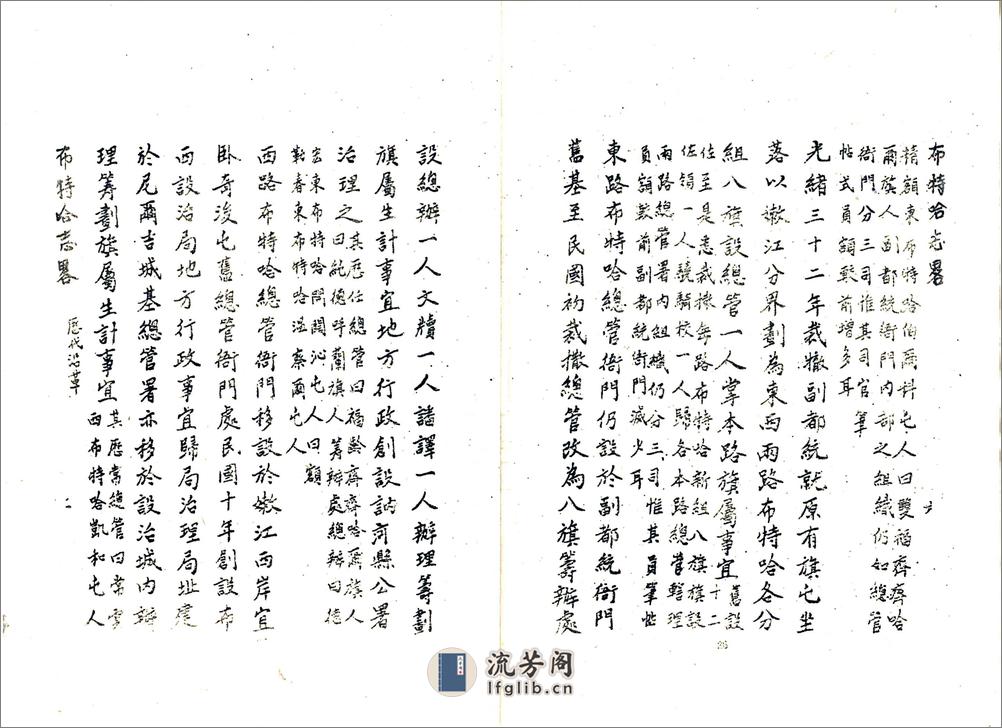 布特哈志畧　六
精額東布特哈伯爾科屯人曰雙福齊齊哈
爾旗人副都統衙門內部之組織仍如總管
衙門分三司惟其司官筆
帖式員額較前增多耳
光緒三十二年裁撤副都統就原有旗屯坐
落以嫩江分界劃為東西兩路布特哈各分
組八旗設總管一人掌本路旗屬事宜舊設十二
佐至是悉裁撤每路布特哈新組八旗旗設
佐領一人驍騎校一人歸各本路總管轄理
兩路總管署內組織仍分三司惟其員筆帖
員額較前副都統衙門減少耳
東路布特哈總管衙門仍設於副都統衙門
舊基至民國初裁撤總管改為八旗籌辦處
36
設總辦一人文牘一人譜譯一人辦理籌劃
旗屬生計事宜地方行政創設訥河縣公署
治理之其歷任總管曰福齡齊齊哈爾旗人
曰純德呼蘭旗人籌辦處總辦曰德
宏東布特哈問沁屯人曰額
勒春東布特哈溫察爾屯人
西路布特哈總管衙門移設於嫩江西岸宜
臥奇後屯舊總管衙門處民國十年創設布
西設治局地方行政事宜歸局治理局址建
於尼爾吉城基總管署亦移於設治城內辦
理籌劃旗屬生計事宜其歷常總管曰常雲
西布特哈凱和屯人
布特哈志畧　歷代沿革　二
流芳阁
lfglib.cn